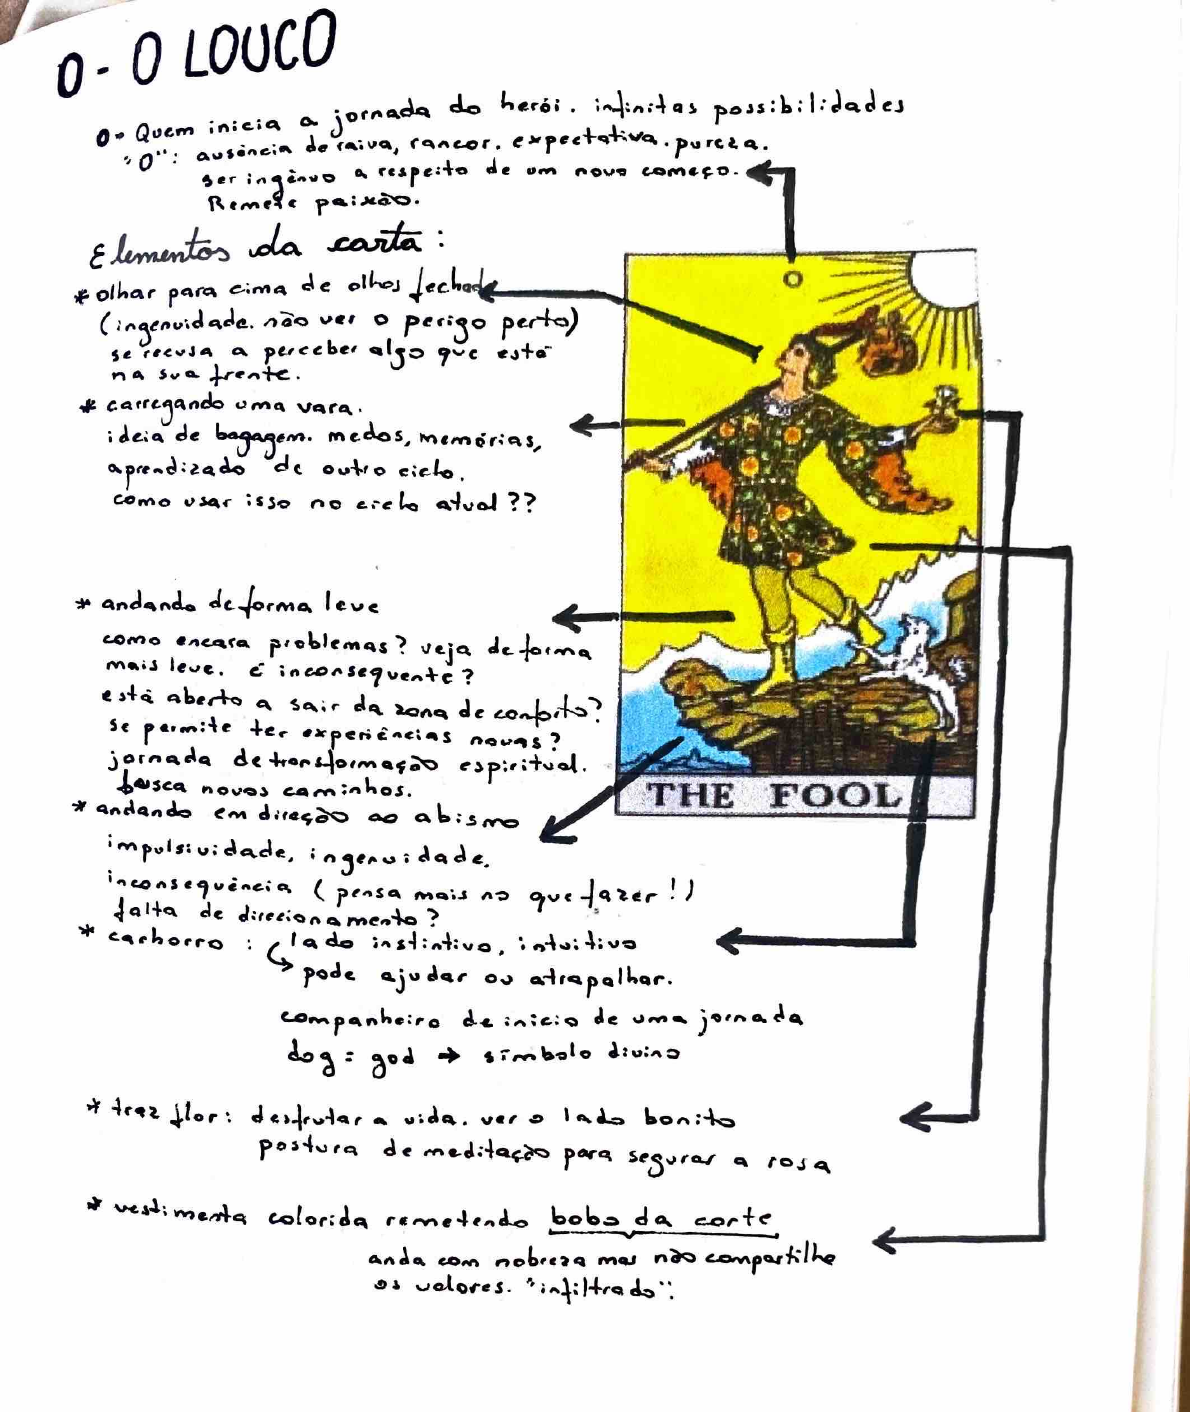 0 - O LOUCO
0 - Quem inicia a jornada do herói. infinitas possibilidades
"0": ausência de raiva, rancor. expectativa. pureza.
ser ingênuo a respeito de um novo começo.
Remete paixão.
Elementos da carta:
* olhar para cima de olhos fechado
(ingenuidade. não ver o perigo perto)
se recusa a perceber algo que está
na sua frente.
* carregando uma vara.
ideia de bagagem. medos, memórias,
aprendizado de outro ciclo.
como usar isso no ciclo atual??
* andando de forma leve
como encara problemas? veja de forma
mais leve. é inconsequente?
está aberto a sair da zona de conforto?
se permite ter experiências novas?
jornada de transformação espiritual.
busca novos caminhos.
* andando em direção ao abismo
impulsividade, ingenuidade,
inconsequência (pensa mais no que fazer!)
falta de direcionamento?
* cachorro : lado instintivo, intuitivo
pode ajudar ou atrapalhar.
companheiro de inicio de uma jornada
dog = god → símbolo divino
* traz flor: desfrutar a vida. ver o lado bonito
postura de meditação para segurar a rosa
* vestimenta colorida remetendo bobo da corte
anda com nobreza mas não compartilha
os valores. "infiltrado".
0
THE FOOL